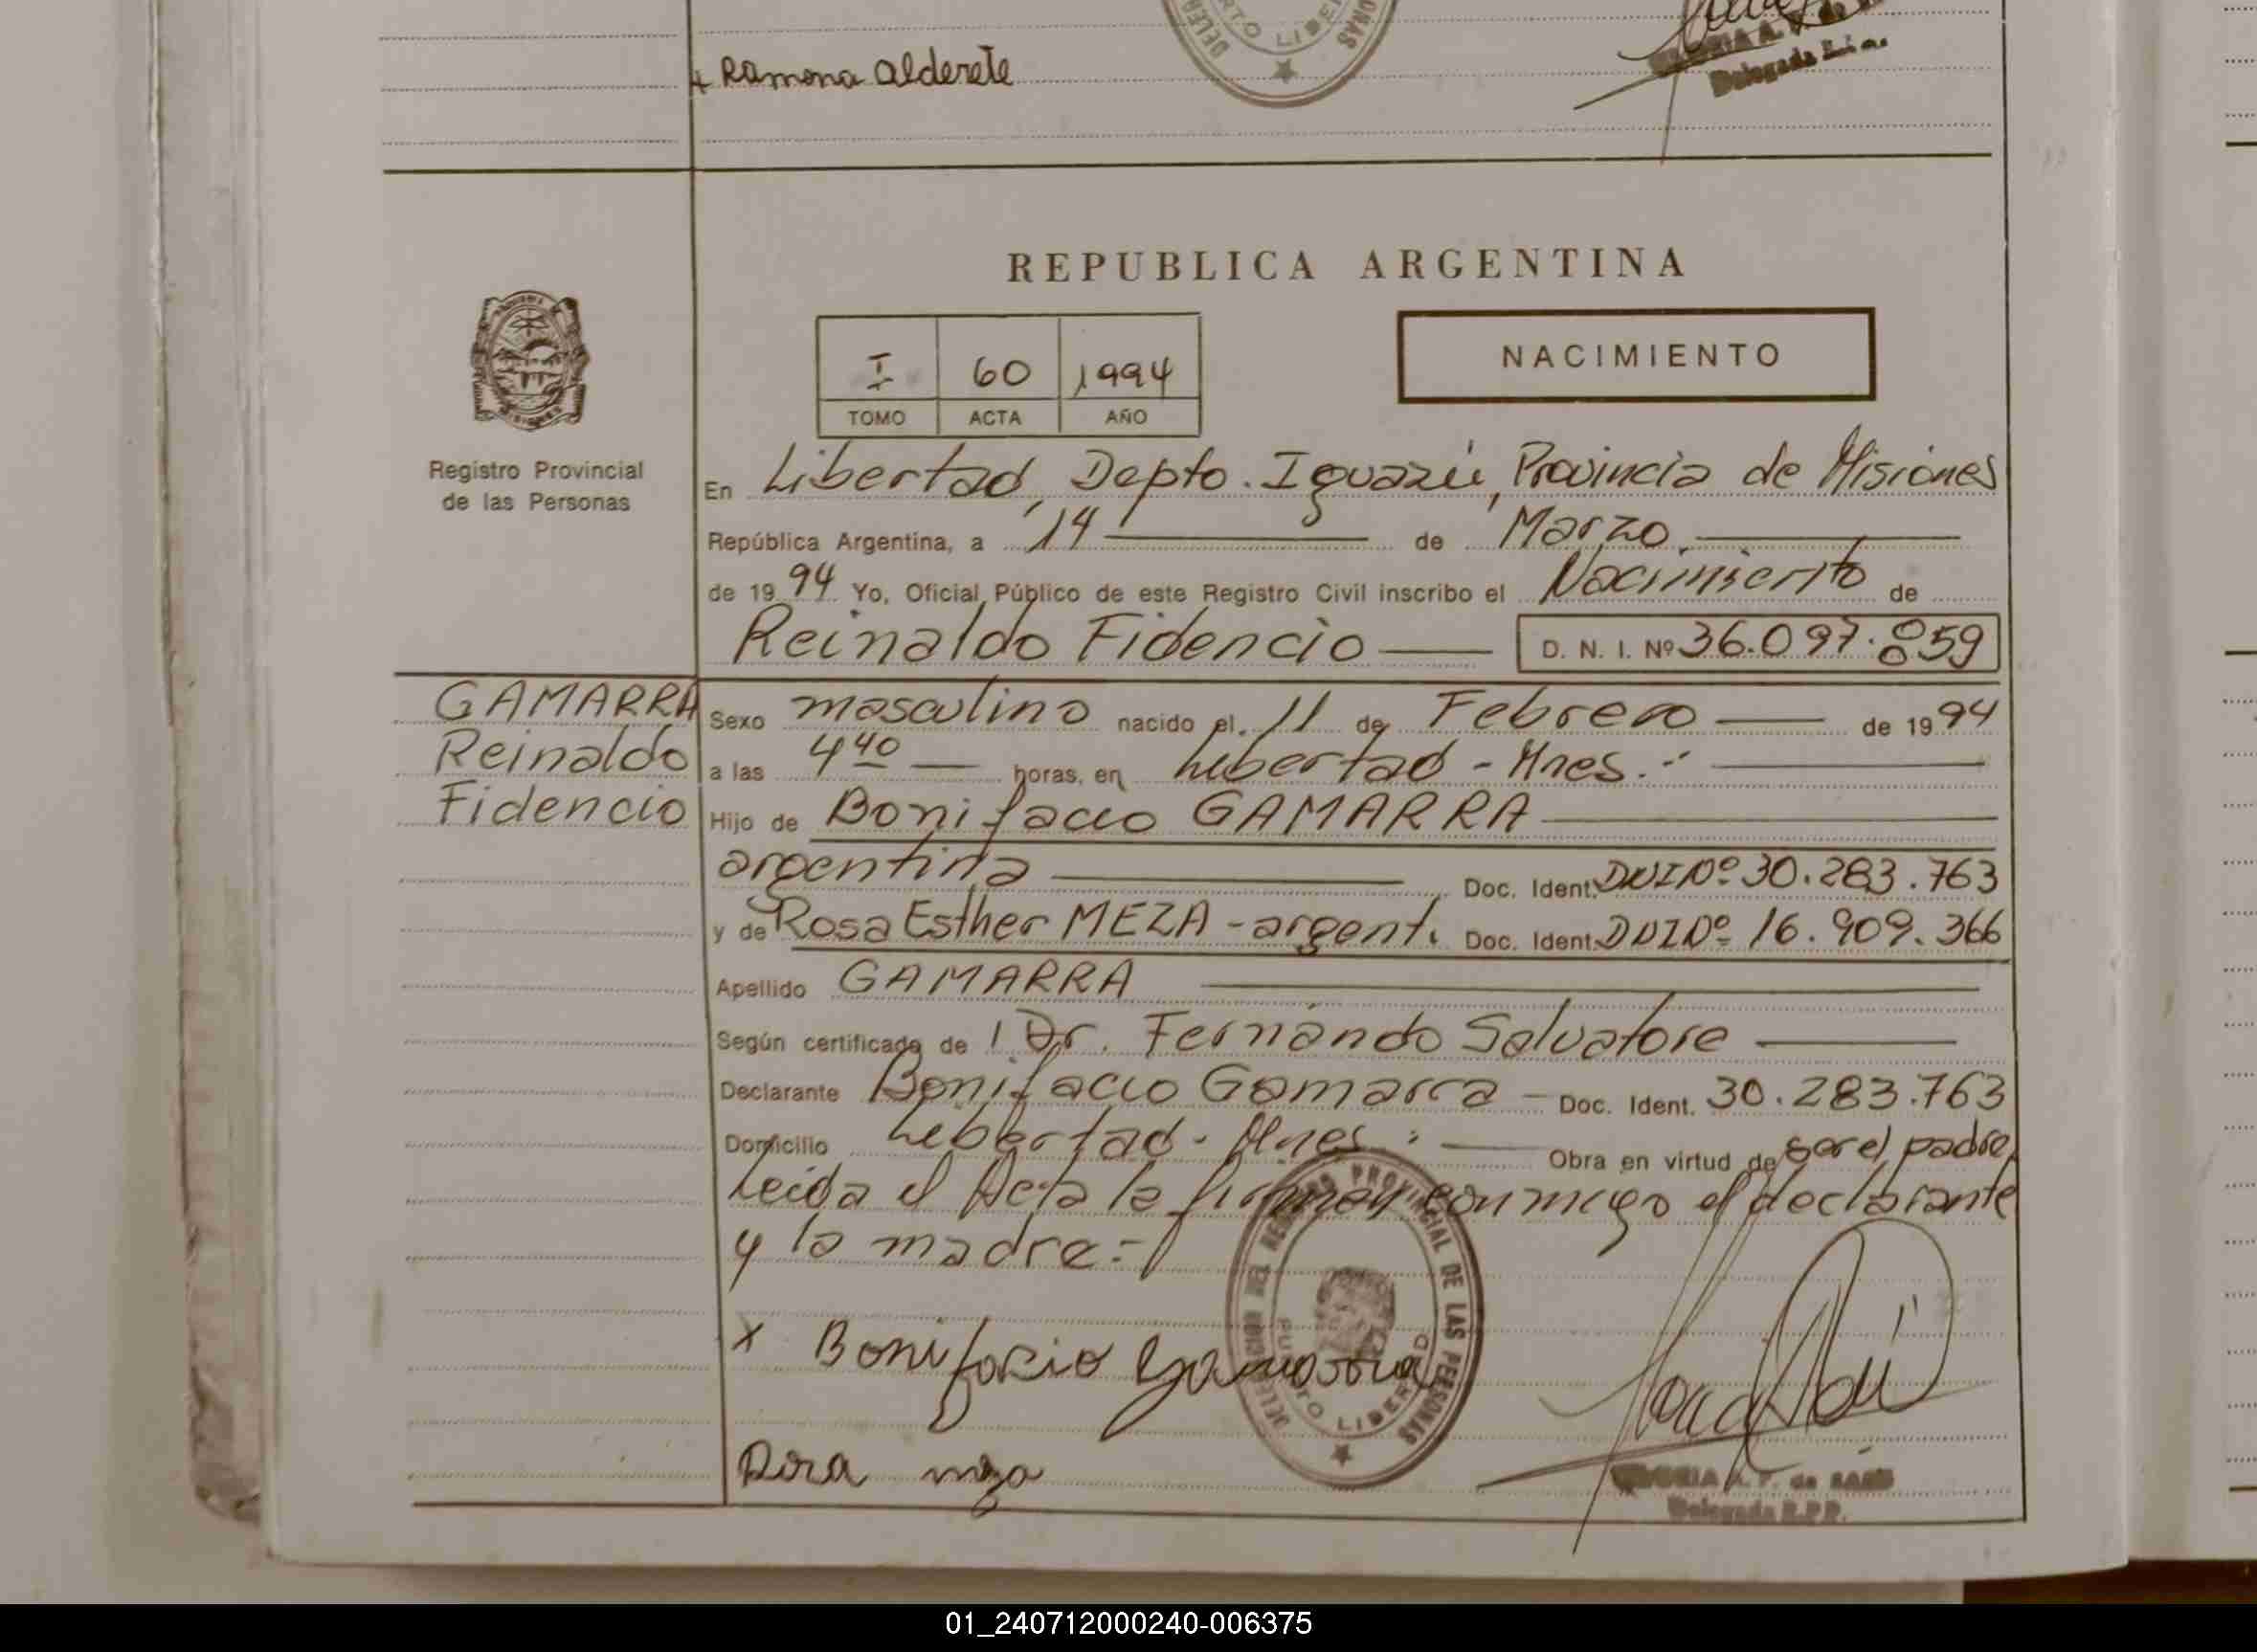 x Ramona Alderete
REPUBLICA ARGENTINA
I 60 1994
TOMO ACTA AÑO
NACIMIENTO
Registro Provincial
de las Personas
En Libertad, Depto. Iguazú, Provincia de Misiones
República Argentina, a 14 de Marzo
de 1994 Yo, Oficial Público de este Registro Civil inscribo el Nacimiento de
Reinaldo Fidencio D. N. I. Nº 36.097.859
GAMARRA
Reinaldo
Fidencio
Sexo masculino nacido el 11 de Febrero de 1994
a las 4 40 horas, en Libertad - Mnes.-
Hijo de Bonifacio GAMARRA
argentina Doc. Ident. DNI Nº 30.283.763
y de Rosa Esther MEZA - argent. Doc. Ident. DNI Nº 16.909.366
Apellido GAMARRA
Según certificado de l Dr. Fernando Salvatore
Declarante Bonifacio Gamarra - Doc. Ident. 30.283.763
Domicilio Libertad - Mnes. Obra en virtud de ser el padre
Leida el Acta la firman conmigo el declarante
y la madre:-
x Bonifacio Gamarra
DELEGACION DEL REGISTRO PROVINCIAL DE LAS PERSONAS
PUERTO LIBERTAD
Rosa meza
A. F. de
Delegada R.P.P.
01_240712000240-006375